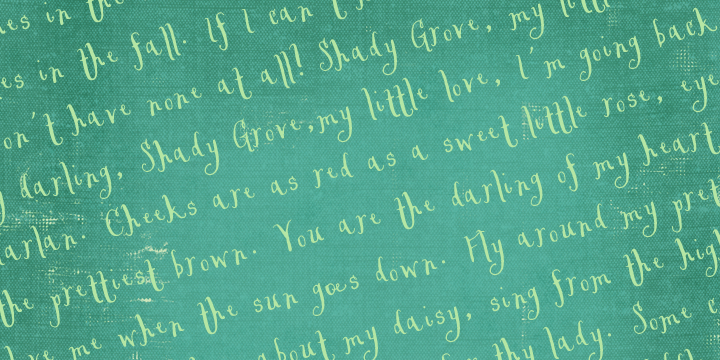 in the
in the fall. If I can't
don't have none at all! Shady Grove, my little
darling, Shady Grove, my little love, I'm going back
Harlan. Cheeks are as red as a sweet little rose, eyes
the prettiest brown. You are the darling of my heart
me when the sun goes down. Fly around my
about my daisy, sing from the
thy lady. Some